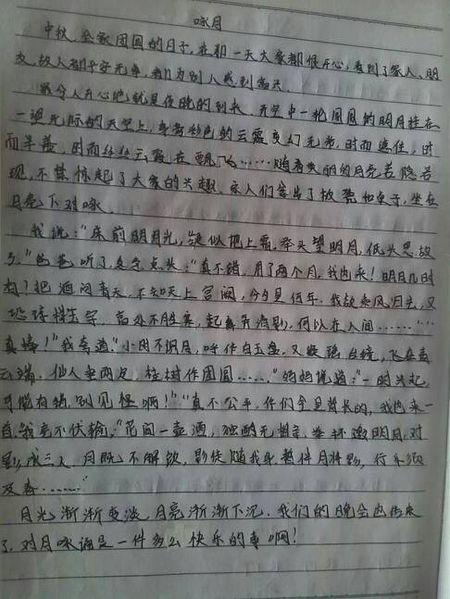 咏月
中秋,全家团圆的日子,在初一天大家都很开心,看到了家人、朋
友、故人都平安无事,我们为别人感到高兴。
最令人开心吧就是夜晚的到来,天空中一轮圆圆的明月挂在
一望无际的天空上,彩色的云霞变幻无常,时而遮住,时
而半盖,时而丝丝云霞在飘飞……随着美丽的月亮若隐若
现,不禁惊起了大家的兴趣,家人们拿出了板凳和桌子,坐在
月亮下对咏。
我说:“床前明月光,疑似地上霜,举头望明月,低头思故
乡。”爸爸听了,点头:“真不错,用了两个月,我也来!明月几时
有?把酒问青天,不知天上宫阙,今夕是何年,我欲乘风归去,又
恐琼楼玉宇,高处不胜寒,起舞弄清影,何以在人间……”“
真棒!”我夸道。“小时不识月,呼作白玉盘,又疑瑶台镜,飞在青
云端,仙人垂两足,桂树作团团……”妈妈说道:“一时兴起,
可能有错,别见怪啊!”“真不公平,你们全是首长的,我也来一
首,我毫不伏输:“花间一壶酒,独酌无相亲,举杯邀明月,对
影成三人,月既不解饮,影徒随我身,暂伴月将影,行乐须
及春……”
月光渐渐变淡,月亮渐渐下沉,我们的晚会也结束
了,对月咏诵是一件多么快乐的事啊!